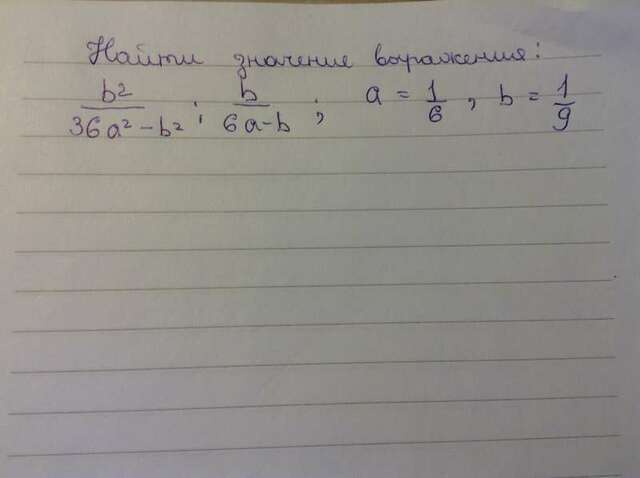 Найти значение выражения:
b²/(36a² - b²) : b/(6a - b) ; a = 1/6 , b = 1/9